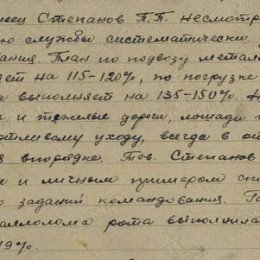 Степанов П.П. несмотр
службы систематически
План по подвозу металл
на 115-120%, по погрузке
выполняет на 135-150%.
и тяжелые дороги, лошади
уходу, всегда в от
в порядке. Тов. Степанов
и личным примером
заданий командования.
рота выполнила
19%.